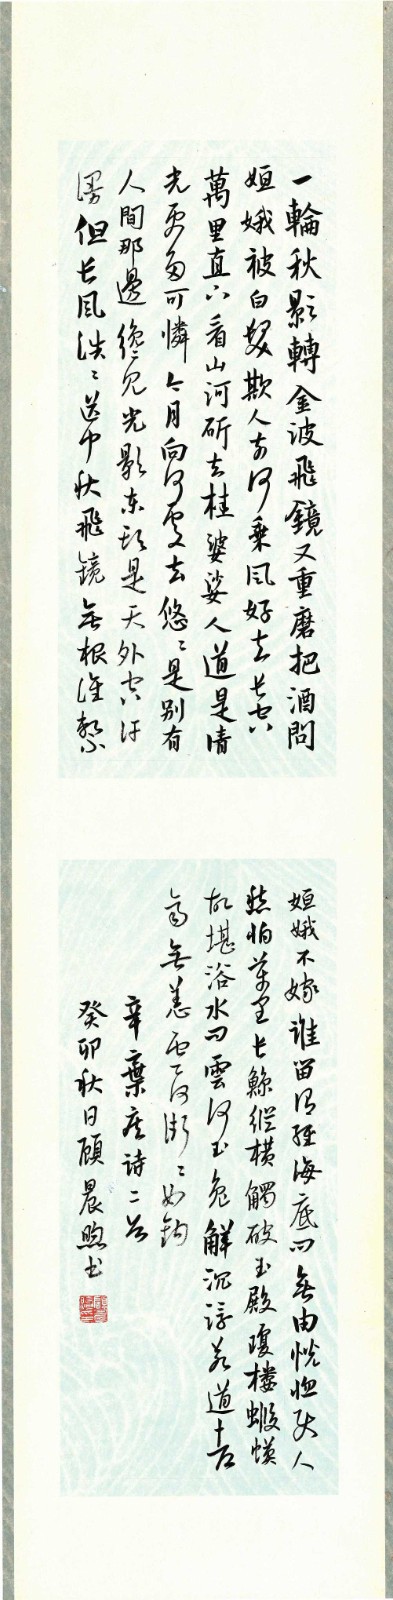 一輪秋影轉金波飛鏡又重磨把酒問
姮娥被白髮欺人奈何乘風好去長空
萬里直下看山河斫去桂婆娑人道是清
光更多可憐今月向何處去悠〻是別有
人間那邊纔見光影東頭是天外空汗
漫但長風浩〻送中秋飛鏡無根誰繫
姮娥不嫁誰留謂經海底問無由恍惚使人
愁怕萬里長鯨縱橫觸破玉殿瓊樓蝦蟆
故堪浴水問雲何玉兔解沉浮若道都
齊無恙云何漸〻如鉤
辛棄疾詩二首
癸卯秋日顧晨煦书